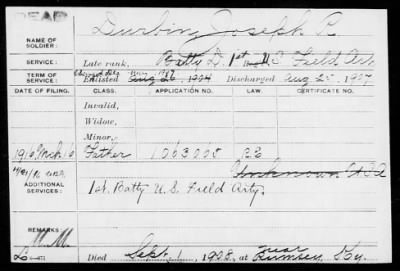 DEAD
Durbin, Joseph P.
NAME OF SOLDIER:
SERVICE: Late rank, Batty D. 1st U.S. Field Art.
TERM OF SERVICE: Enlisted Aug 26, 1904 Discharged Aug 25, 1907
DATE OF FILING. CLASS. APPLICATION NO. LAW. CERTIFICATE NO.
Invalid,
Widow,
Minor,
1916 Mch 16 Father 1063008
ADDITIONAL SERVICES: 1st. Batty U.S. Field Arty.
REMARKS:
Died Sept. 1908, at near Rumsey, Ky.